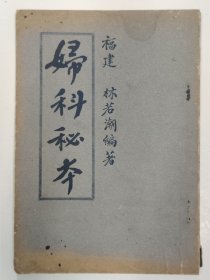 福建 林若潮編著
婦科秘本